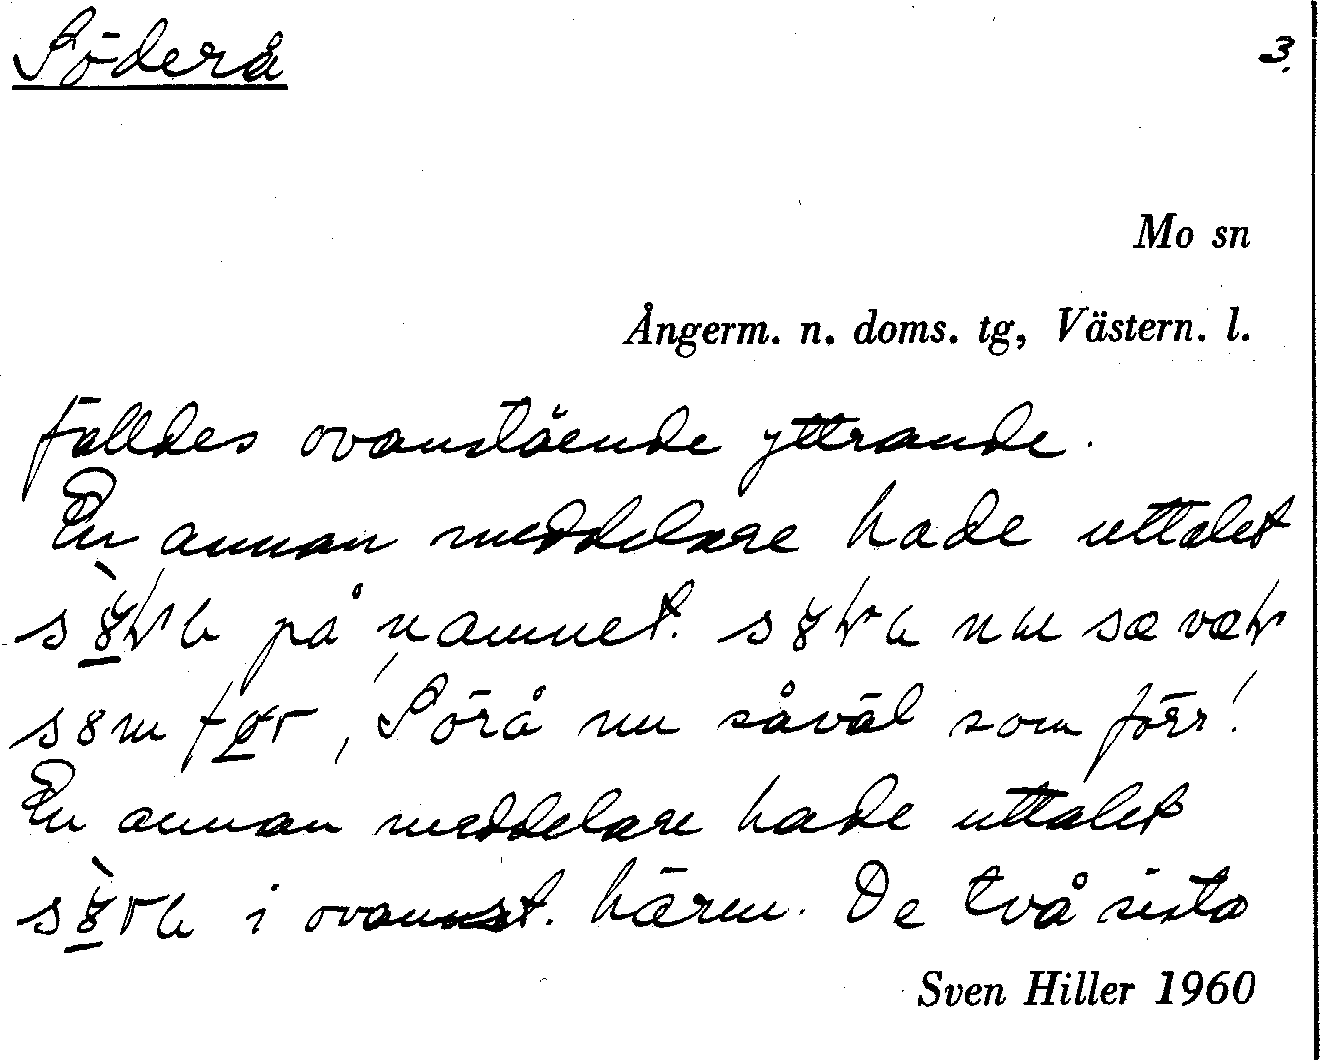 Söderå
3.
Mo sn
Ångerm. n. doms. tg, Västern. l.
fälldes ovanstående yttrande.
En annan meddelare hade uttalet
på namnet. nu
som , 'Sörå nu såväl som förr'.
En annan meddelare hade uttalet
i ovannst. härm. De två sista
Sven Hiller 1960